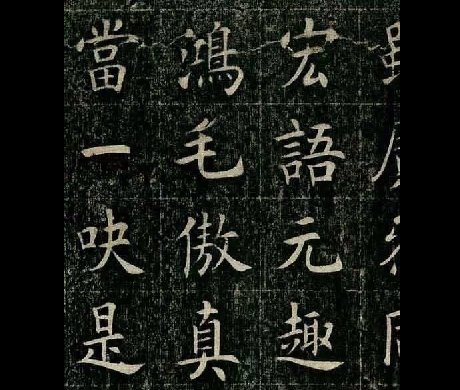 宏語元趣
鴻毛傲真
當一吷是